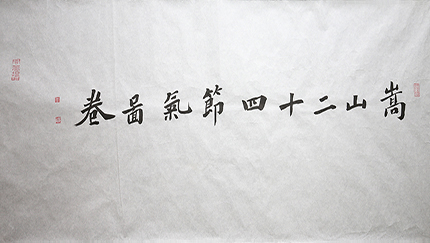 嵩山二十四節氣啚卷